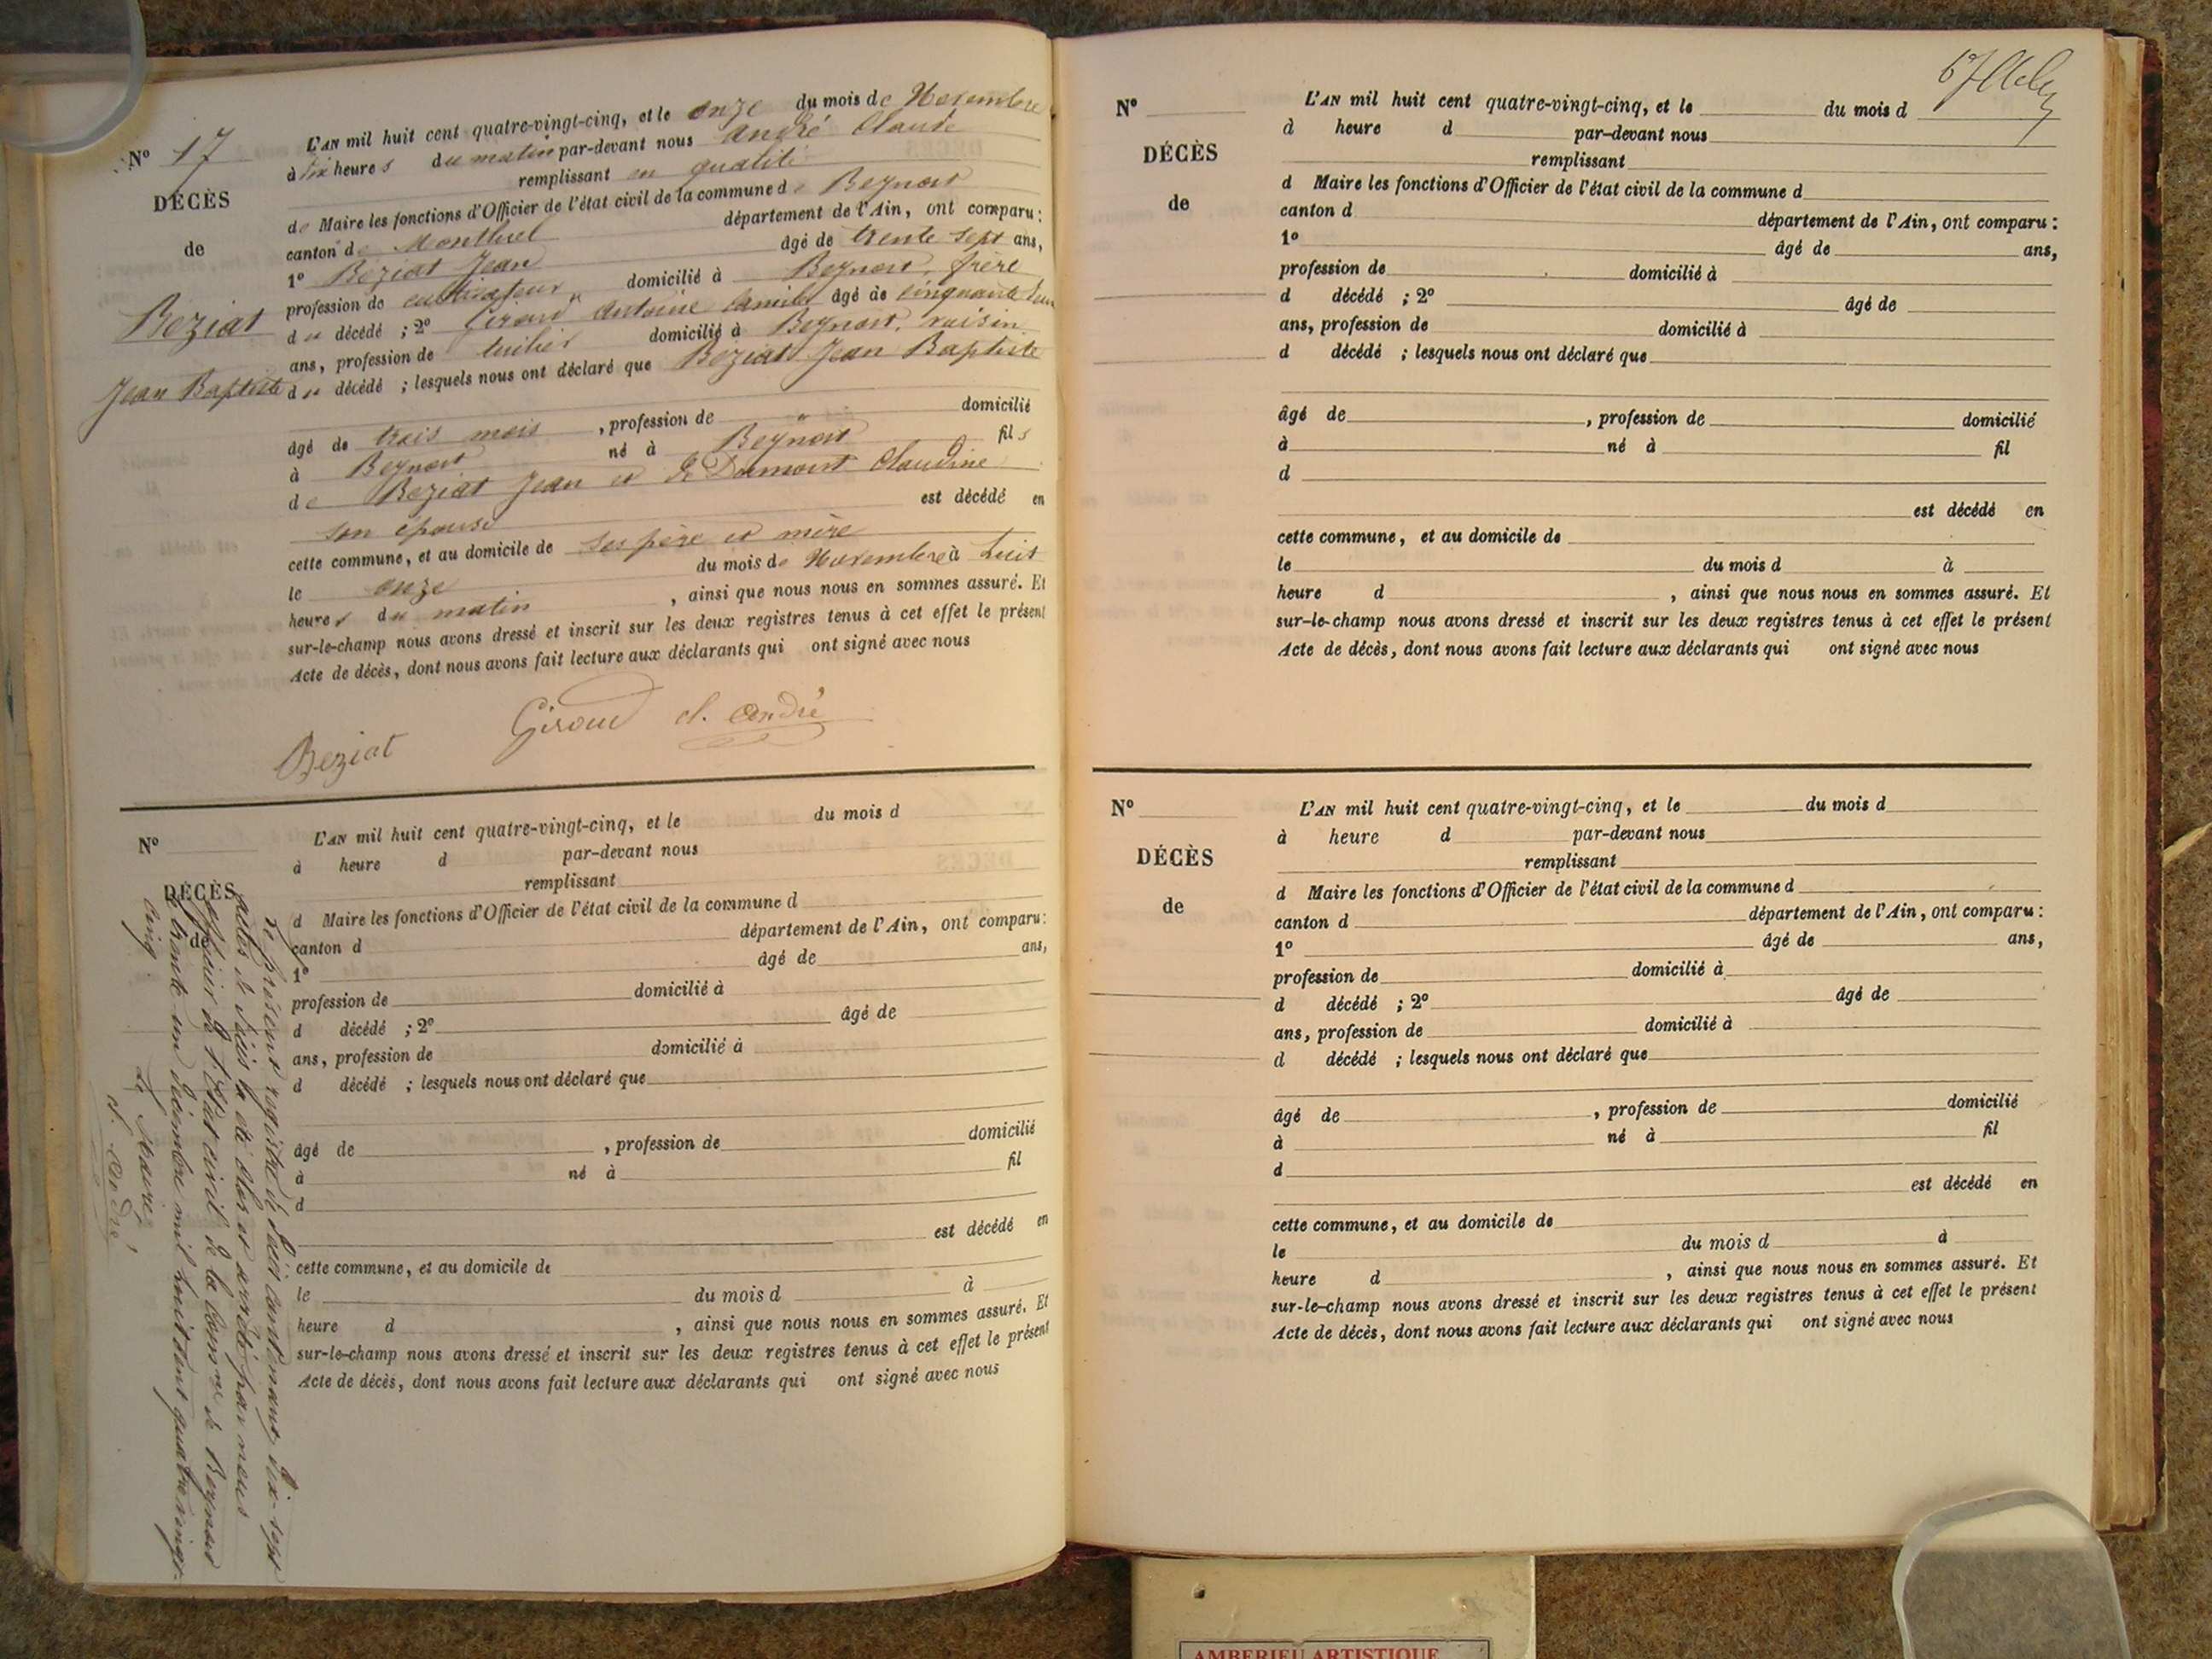 N° 17
DÉCÈS
de
Beziat
Jean Baptiste
L'AN mil huit cent quatre-vingt-cinq, et le onze du mois de Novembre
à dix heures du matin par-devant nous André Claude
remplissant en qualité
de Maire les fonctions d'Officier de l'état civil de la commune de Beynost
canton de Montluel département de l'Ain, ont comparu :
1° Beziat Jean âgé de trente sept ans,
profession de cultivateur domicilié à Beynost, frère
du décédé ; 2° Giroud Antoine Camile âgé de cinquante deux
ans, profession de tuilier domicilié à Beynost, voisin
du décédé ; lesquels nous ont déclaré que Beziat Jean Baptiste
âgé de trois mois , profession de " domicilié
à Beynost né à Beynost fils
de Beziat Jean et de Dumont Claudine
son épouse est décédé en
cette commune, et au domicile de ses père et mère
le onze du mois de Novembre à huit
heures du matin , ainsi que nous nous en sommes assuré. Et
sur-le-champ nous avons dressé et inscrit sur les deux registres tenus à cet effet le présent
Acte de décès, dont nous avons fait lecture aux déclarants qui ont signé avec nous
Beziat Giroud cl. André
N°
DÉCÈS
de
L'AN mil huit cent quatre-vingt-cinq, et le du mois d
à heure d par-devant nous
remplissant
d Maire les fonctions d'Officier de l'état civil de la commune d
canton d département de l'Ain, ont comparu :
1° âgé de ans,
profession de domicilié à
d décédé ; 2° âgé de
ans, profession de domicilié à
d décédé ; lesquels nous ont déclaré que
âgé de , profession de domicilié
à né à fil
d
est décédé en
cette commune, et au domicile de
le du mois d à
heure d , ainsi que nous nous en sommes assuré. Et
sur-le-champ nous avons dressé et inscrit sur les deux registres tenus à cet effet le présent
Acte de décès, dont nous avons fait lecture aux déclarants qui ont signé avec nous
Le présent registre de décès contenant dix-sept
actes de décès a été clos et arrêté par nous
officier de l'Etat civil de la Comne de Beynost
le trente un Décembre mil huit cent quatre vingt-
cinq.
Le Maire,
cl. André
N°
DÉCÈS
de
L'AN mil huit cent quatre-vingt-cinq, et le du mois d
à heure d par-devant nous
remplissant
d Maire les fonctions d'Officier de l'état civil de la commune d
canton d département de l'Ain, ont comparu :
1° âgé de ans,
profession de domicilié à
d décédé ; 2° âgé de
ans, profession de domicilié à
d décédé ; lesquels nous ont déclaré que
âgé de , profession de domicilié
à né à fil
d
est décédé en
cette commune, et au domicile de
le du mois d à
heure d , ainsi que nous nous en sommes assuré. Et
sur-le-champ nous avons dressé et inscrit sur les deux registres tenus à cet effet le présent
Acte de décès, dont nous avons fait lecture aux déclarants qui ont signé avec nous
N°
DÉCÈS
de
L'AN mil huit cent quatre-vingt-cinq, et le du mois d
à heure d par-devant nous
remplissant
d Maire les fonctions d'Officier de l'état civil de la commune d
canton d département de l'Ain, ont comparu :
1° âgé de ans,
profession de domicilié à
d décédé ; 2° âgé de
ans, profession de domicilié à
d décédé ; lesquels nous ont déclaré que
âgé de , profession de domicilié
à né à fil
d
est décédé en
cette commune, et au domicile de
le du mois d à
heure d , ainsi que nous nous en sommes assuré. Et
sur-le-champ nous avons dressé et inscrit sur les deux registres tenus à cet effet le présent
Acte de décès, dont nous avons fait lecture aux déclarants qui ont signé avec nous
AMBERIEU ARTISTIQUE